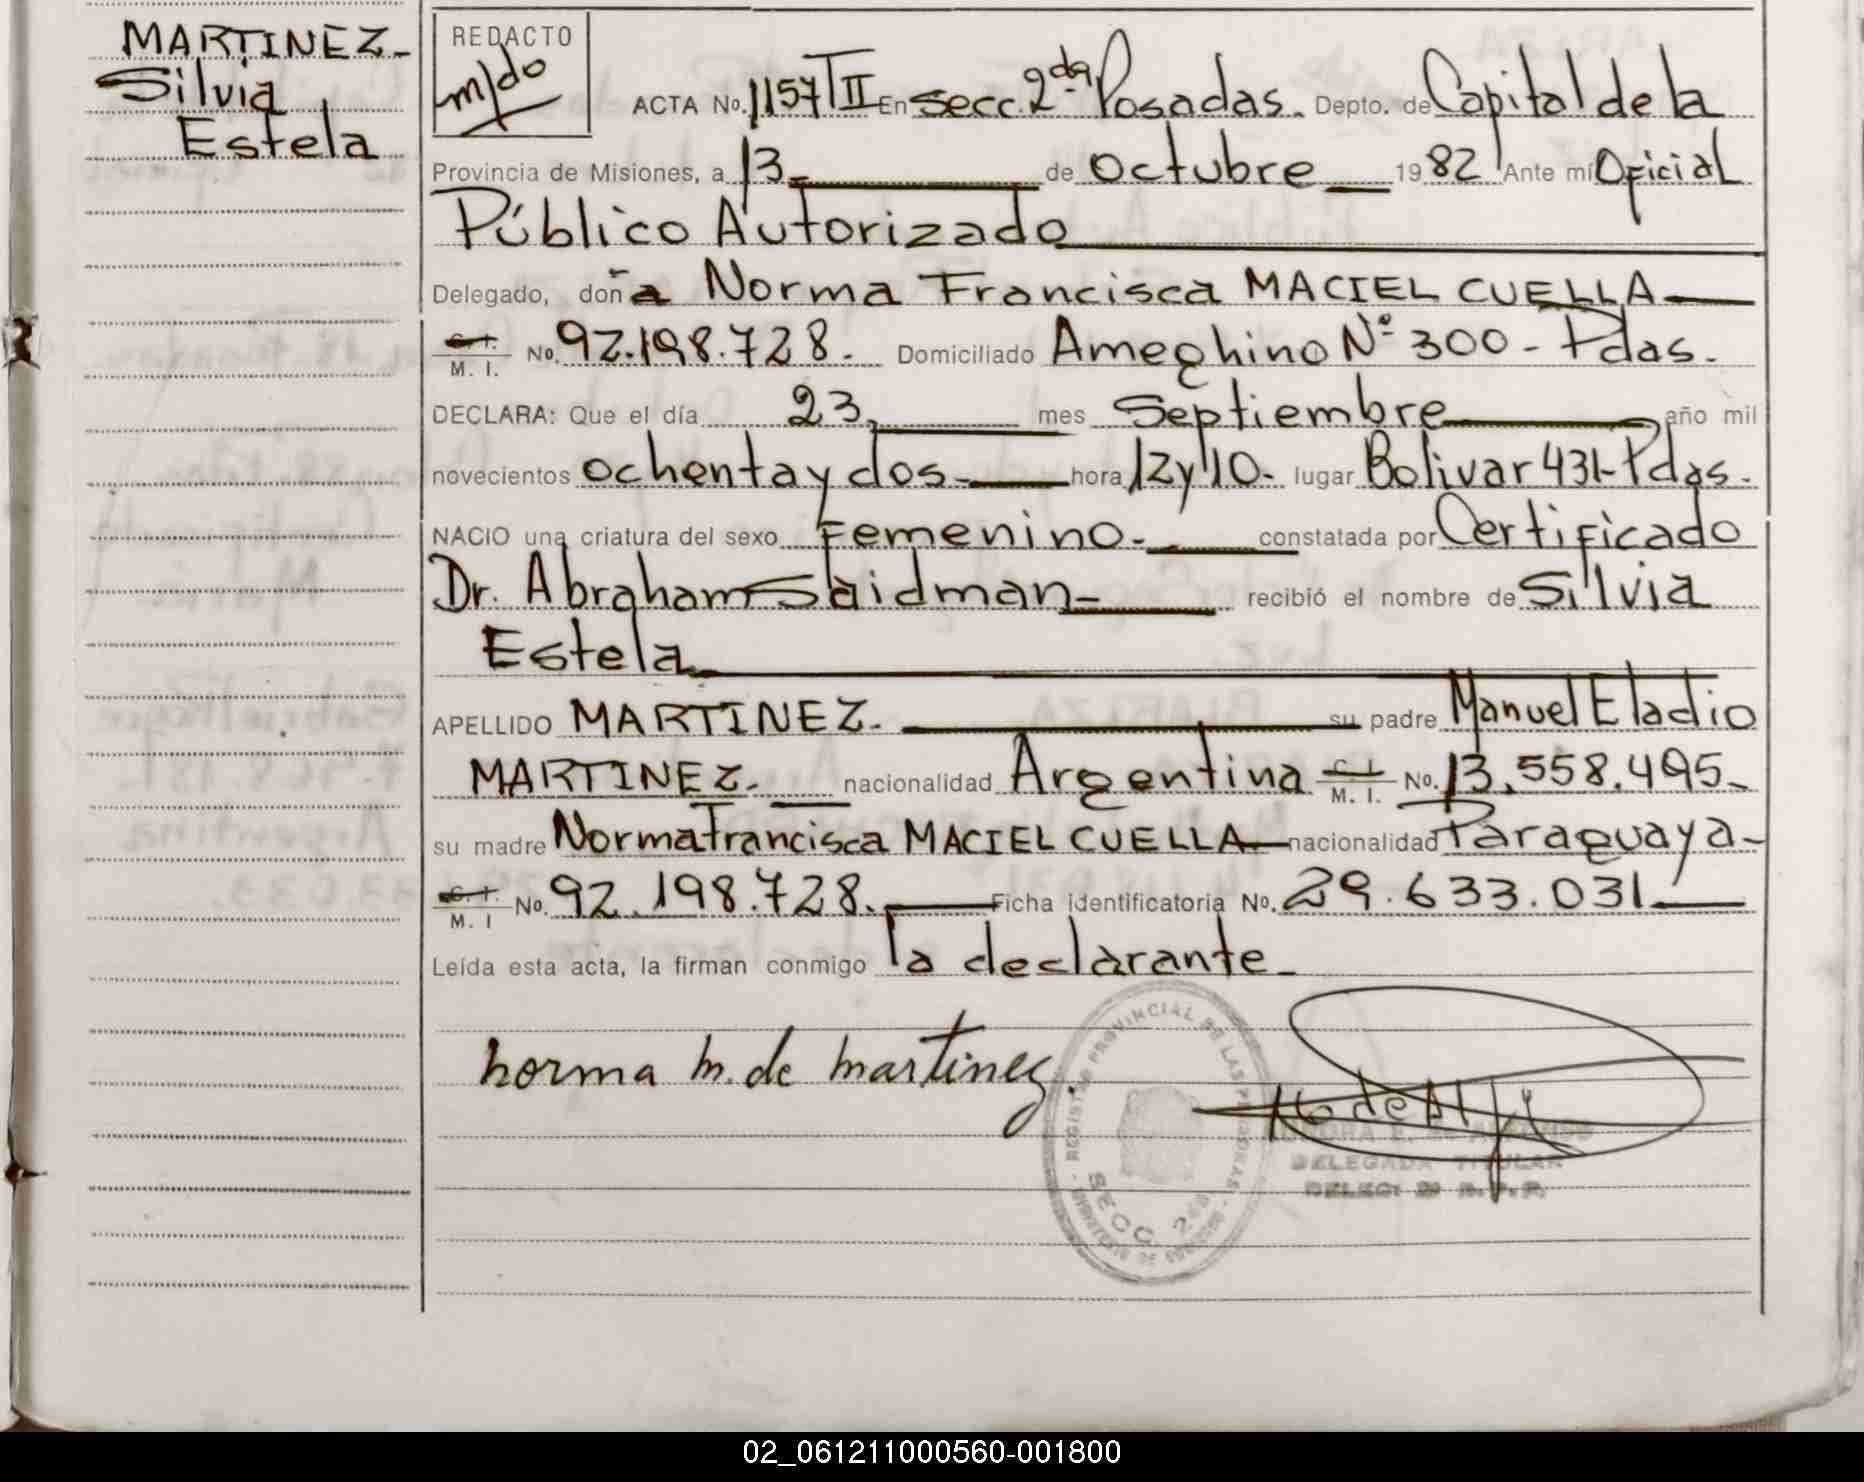 MARTINEZ-
Silvia
Estela
REDACTO
m/do
ACTA No. 1157 T II En Secc. 2da Posadas. Depto. de Capital de la
Provincia de Misiones, a 13 de Octubre 1982 Ante mí Oficial
Público Autorizado
Delegado, doña Norma Francisca MACIEL CUELLA
C. I. M. I. No. 92.198.728. Domiciliado Ameghino Nº 300 - Pdas.
DECLARA: Que el día 23 mes Septiembre año mil
novecientos ochenta y dos hora 12 y 10- lugar Bolivar 431-Pdas.
NACIO una criatura del sexo Femenino- constatada por Certificado
Dr. Abraham Saidman- recibió el nombre de Silvia
Estela
APELLIDO MARTINEZ. su padre Manuel Eladio
MARTINEZ. nacionalidad Argentina C. I. M. I. No. 13.558.495-
su madre Norma Francisca MACIEL CUELLA nacionalidad Paraguaya-
C. I. M. I No. 92.198.728. Ficha identificatoria No. 29.633.031
Leída esta acta, la firman conmigo la declarante
norma m. de martinez.
REGISTRO PROVINCIAL DE LAS PERSONAS
SECC. 2da
DELEGADA TITULAR
02_061211000560-001800